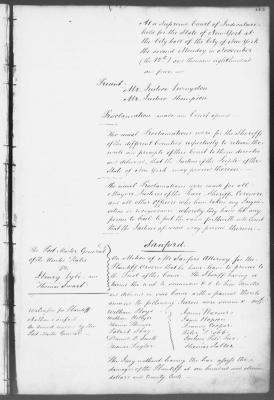 At a Supreme Court of Judicature
held for the State of New York at
the City hall of the City of New York
the second Monday in November
(the 12th) one thousand eight hundred
and four
Present
Mr. Justice Livingston
Mr. Justice Thompson
Proclamation made and Court opened
The usual Proclamations were for the Sheriffs
of the different Counties respectively to return the
writs and precepts of this Court to them directed
and delivered, that the Justices of the People of the
State of New York may proceed thereon
The usual Proclamations were made for all
Mayors, Justices of the Peace Sheriffs, Coroners
and all other Officers who have taken any Inqui-
sitions or recognizances whereby they have let any
person to bail to put the same forthwith in Court
that the Justices of may proceed thereon
Sanford
The Post Master General
of the United States
vs
Henry Lyle and
Thomas Smart
On Motion of Mr Sanford Attorney for the
Plaintiff Ordered that he have leave to proceed to
the of this cause The Sheriff having
the writ to summon &c to him directed
and delivered in this Cause with a pannel thereto
annexed the following Jurors were sworn &
Witnesses for Plaintiff
Nathan Sanford
General
William
William
Thomas
Robert
Daniel D. Smith
Thomas Taylor
James Warner
James
Francis Cooper
Thomas
The Jury without leaving the bar assess the
damages of the Plaintiff at one hundred and eleven
dollars and twenty Cents